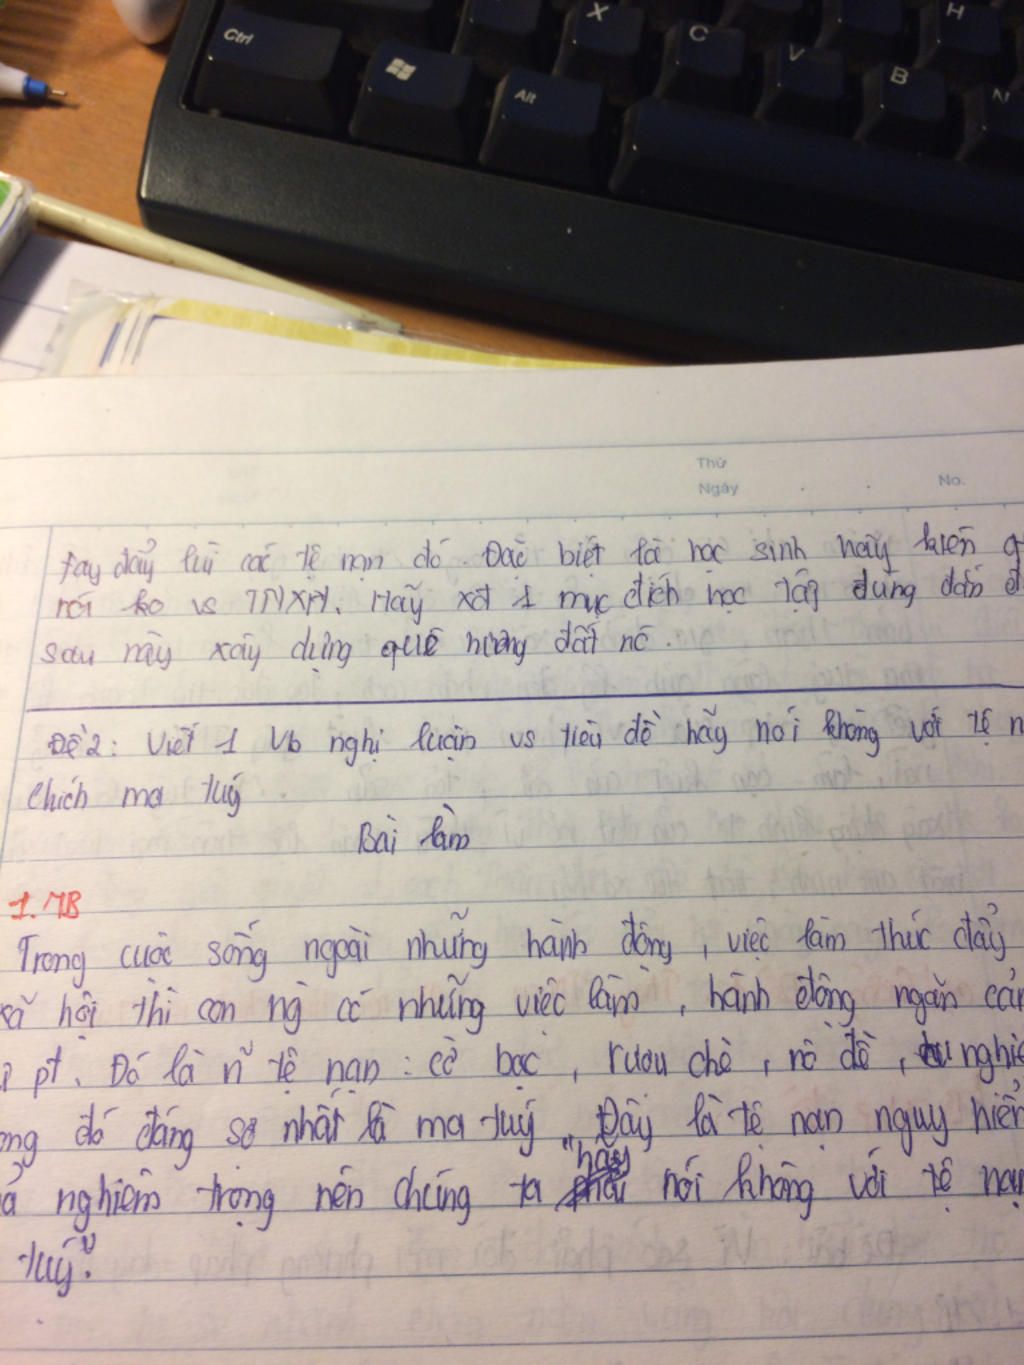 Ctrl
Alt
X
C
V
B
H
N
Thứ
Ngày
No.
tay đẩy lùi các tệ nạn đó. Đặc biệt là học sinh hãy kiên
nói ko vs TNXH. Hãy xđ 1 mục đích học tập đúng đắn để
sau này xây dựng quê hương đất nc.
Đề 2: Viết 1 Vb nghị luận vs tiêu đề hãy nói không với tệ n
chích ma tuý
Bài làm
1. MB
Trong cuộc sống ngoài những hành động, việc làm thúc đẩy
xã hội thì con ng có những việc làm, hành động ngăn cản
pt. Đó là n~ tệ nạn: cờ bạc, rượu chè, lô đề, nghiệ
ong đó đáng sợ nhất là ma tuý. Đây là tệ nạn nguy hiểm
ả nghiêm trọng nên chúng ta "hãy nói không với tệ nạn
tuý".